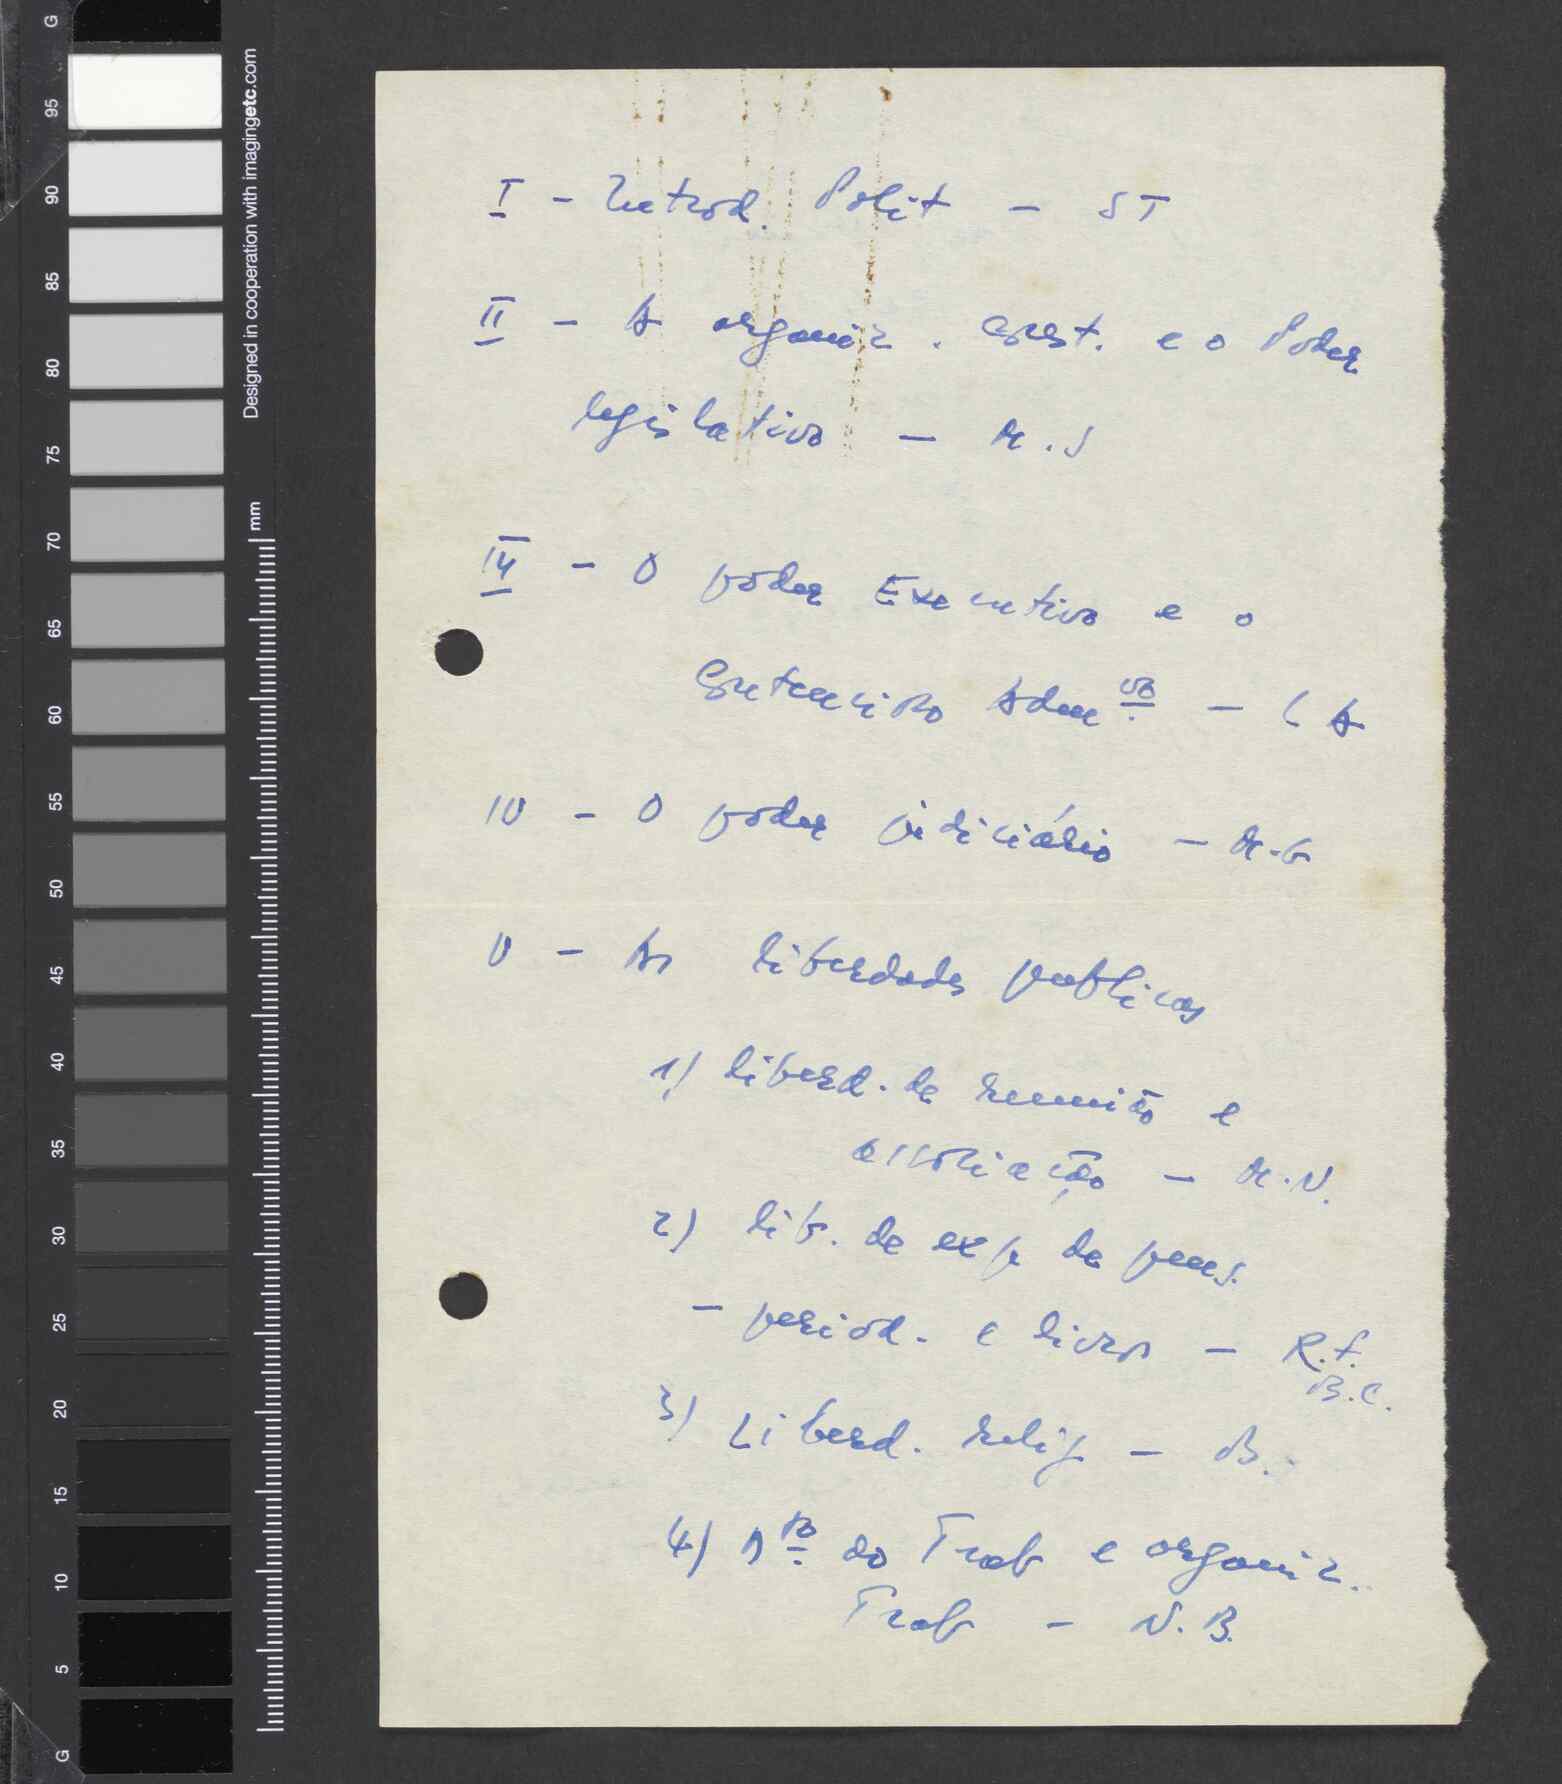 I - Introd. Polit - ST
II - A organiz. Const. e o Poder
legislativo - M.S
III - O poder Executivo e o
Contencioso Adm vo - C A
IV - O poder judiciário - M.G
V - As liberdades publicas
1) liberd. de reunião e
associação - M.N.
2) lib. de exp de pens.
- period. e livros - R.F.
B.C.
3) Liberd. relig - B.
4) Dto do Trab e organiz.
Trab - N.B.
Designed in cooperation with imagingetc.com
mm
G 95 90 85 80 75 70 65 60 55 50 45 40 35 30 25 20 15 10 5 G